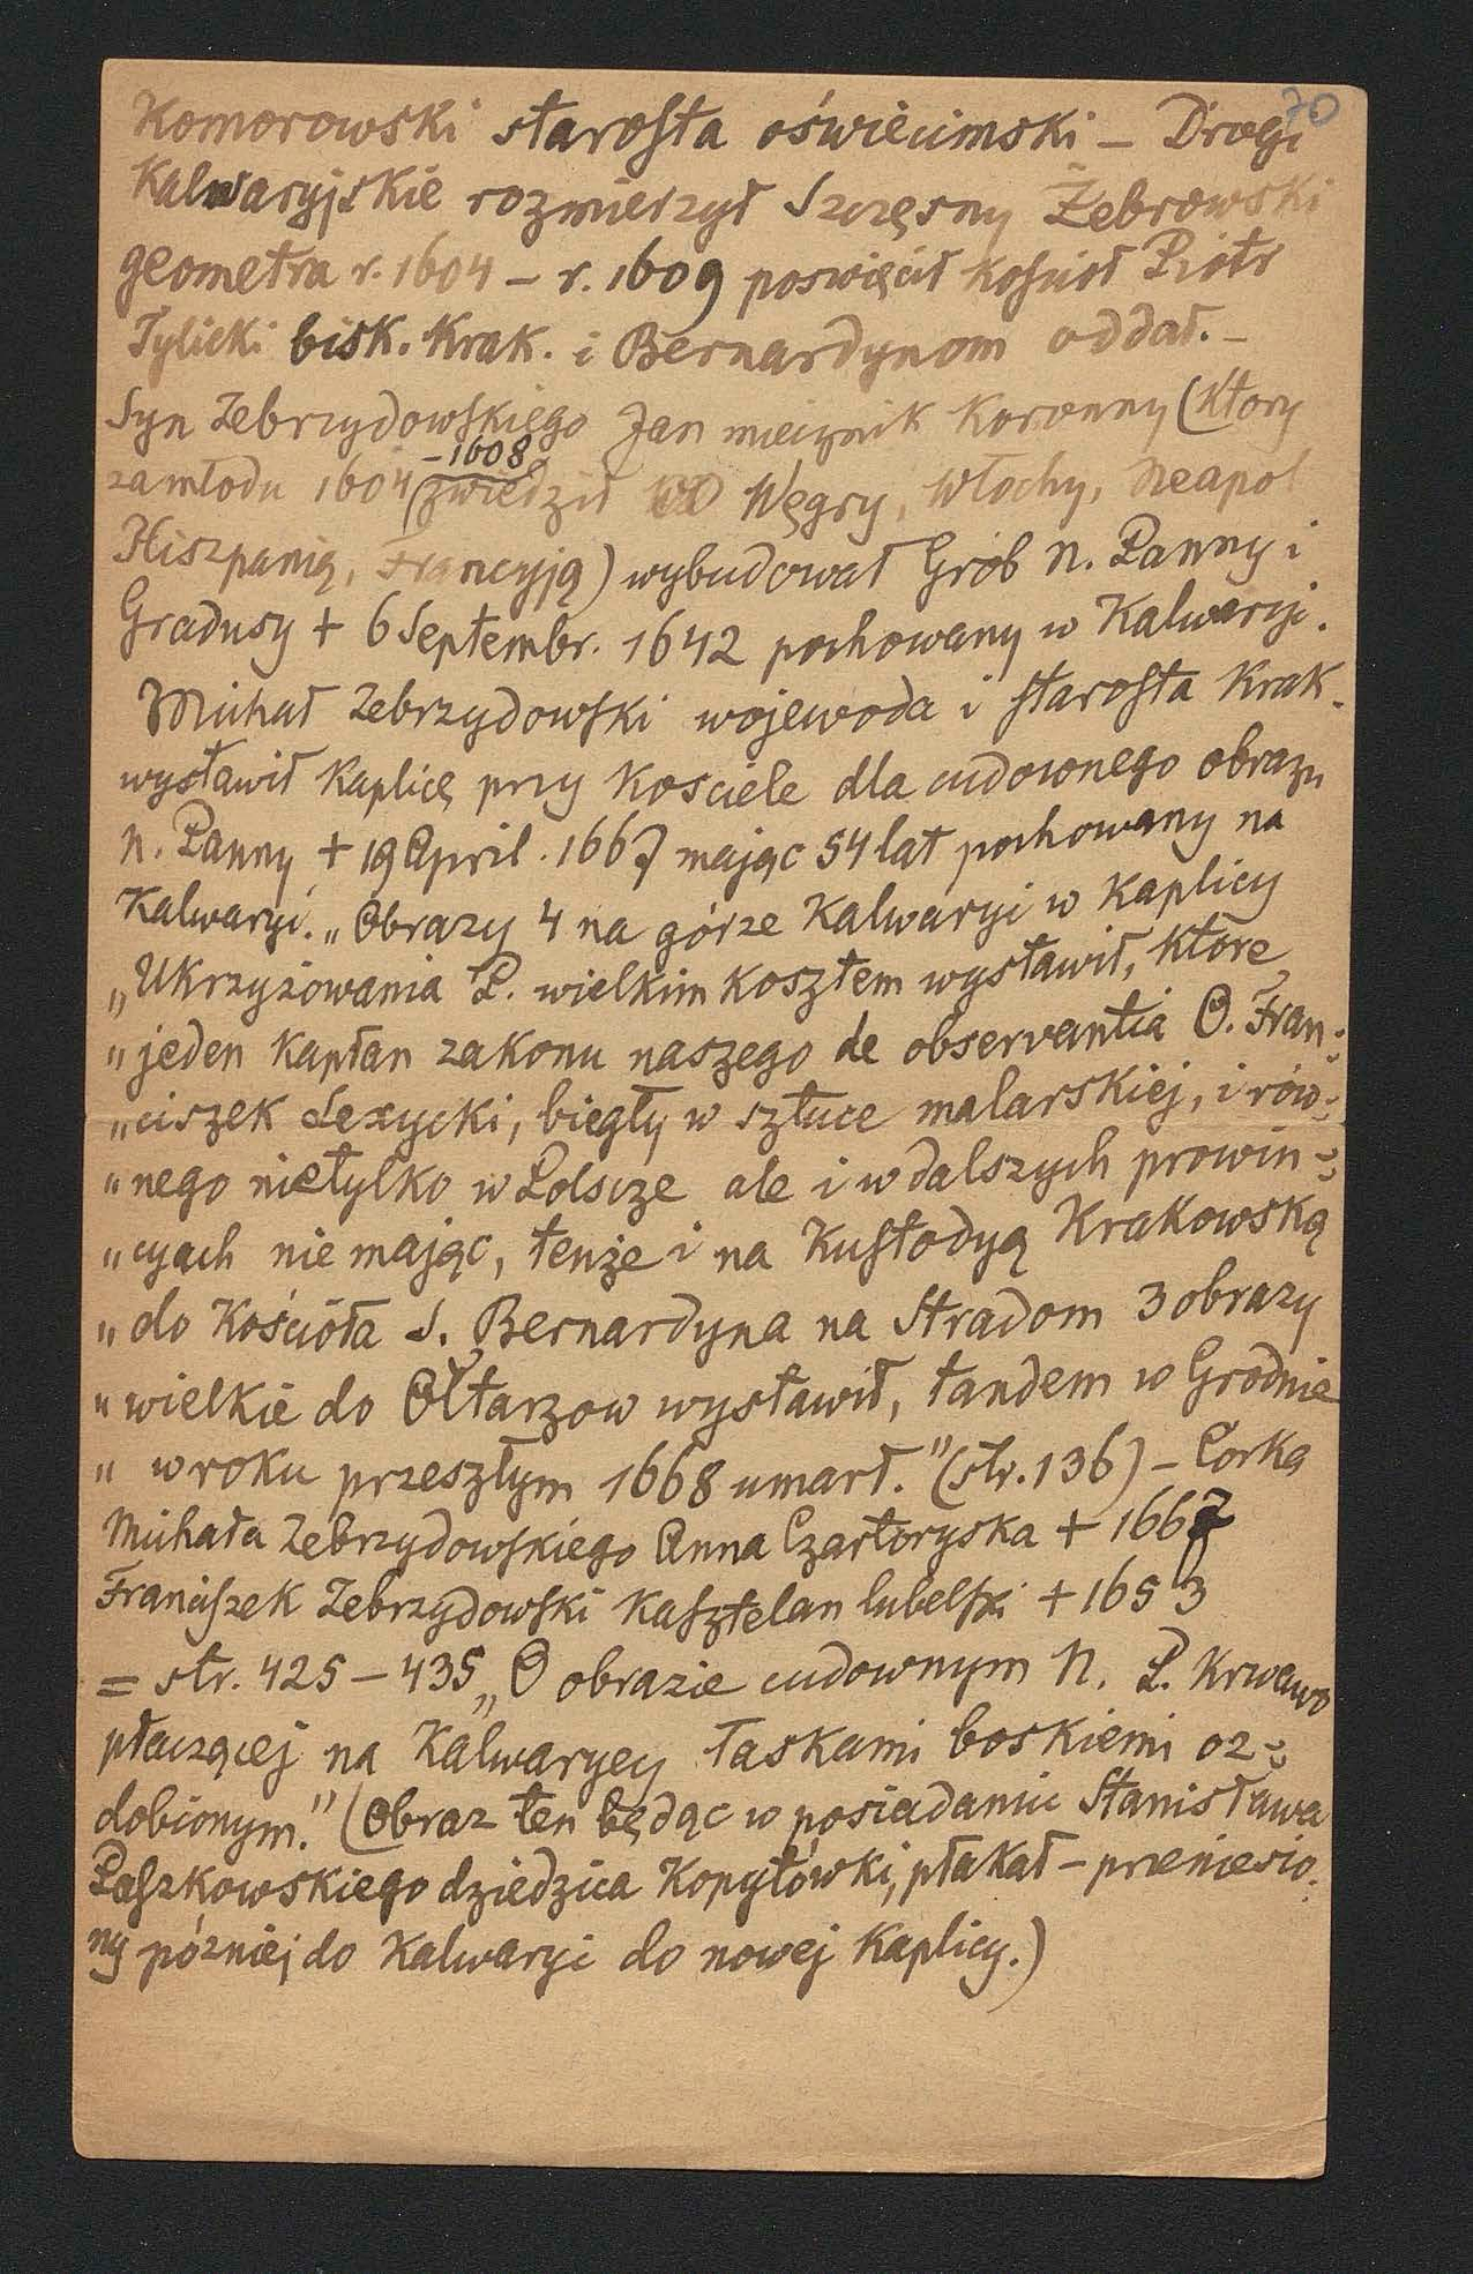 70
Komorowski starosta oświecimski – Drogi
Kalwaryjskie rozmierzył Szczęsny Żebrowski
geometra r. 1604 – r. 1609 poswięcił kośnioł Piotr
Tylicki bisk. Krak. i Bernardynom oddał. –
Syn Zebrzydowskiego Jan miecznik Koronny (Ktory
zamłodu 1604 – 1608 zwiedził Węgry, Włochy, Neapol
Hiszpanią, Francyją) wybudował Grób N. Panny i
Gradusy + 6 Septembr. 1642 pochowany w Kalwaryi.
Michał Zebrzydowski wojewoda i starosta Krak.
wystawił Kaplicę przy Kosciele dla cudownego obrazu
N. Panny + 19 April. 1667 mając 54 lat pochowany na
Kalwaryi. „Obrazy 4 na górze Kalwaryi w Kaplicy
„Ukrzyżowania P. wielkim Kosztem wystawił, Ktore
„jeden Kapłan zakonu naszego de observantia O. Fran-
„ciszek Lexycki, biegły w sztuce malarskiej, i rów-
„nego nietylko w Polscze ale i w dalszych prowin-
„cyach nie mając, tenże i na Kustodyą Krakowską
„do Kościoła S. Bernardyna na Stradom 3 obrazy
„wielkie do Ołtarzow wystawił, tandem w Grodnie
„w roku przeszłym 1668 umarł." (str. 136) – Corka
Michała Zebrzydowskiego Anna Czartoryska + 1667
Franciszek Zebrzydowski Kasztelan lubelski + 1653
= str. 425 – 435 „O obrazie cudownym N. P. Krwawo
płaczącej na Kalwaryey łaskami boskiemi oz-
dobionym." (Obraz ten będąc w posiadaniu Stanisława
Paszkowskiego dziedzica Kopytówki, płakał – przeniesio-
ny później do Kalwaryi do nowej Kaplicy.)